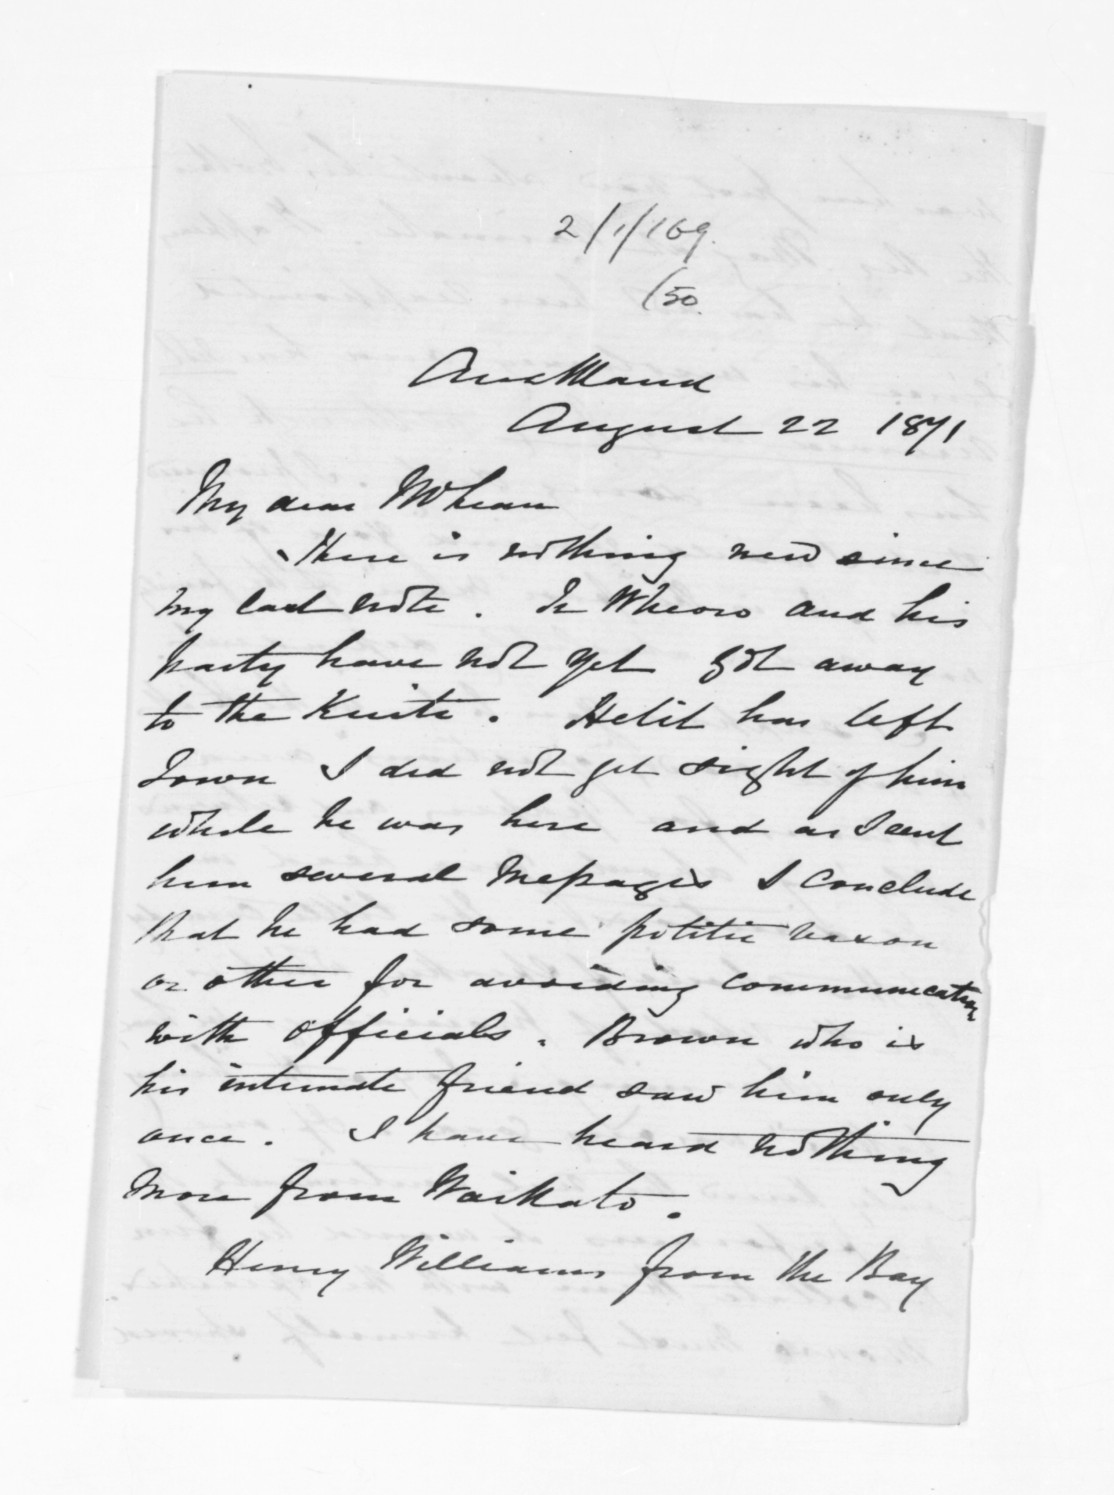 2/1/169.
/50.
Auckland
August 22 1871
My dear McLean
There is nothing new since
my last note. Te Wheoro and his
party have not yet got away
to the Kuiti. Hetit has left
Town I did not get sight of him
while he was here and as I sent
him several Messages I conclude
that he had some politic reason
or other for avoiding communication
with officials. Brown who is
his intimate friend saw him only
once. I have heard nothing
more from Waikato.
Henry Williams from the Bay